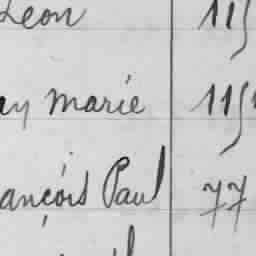 Leon 115
ay Marie 115
ançois Paul 77